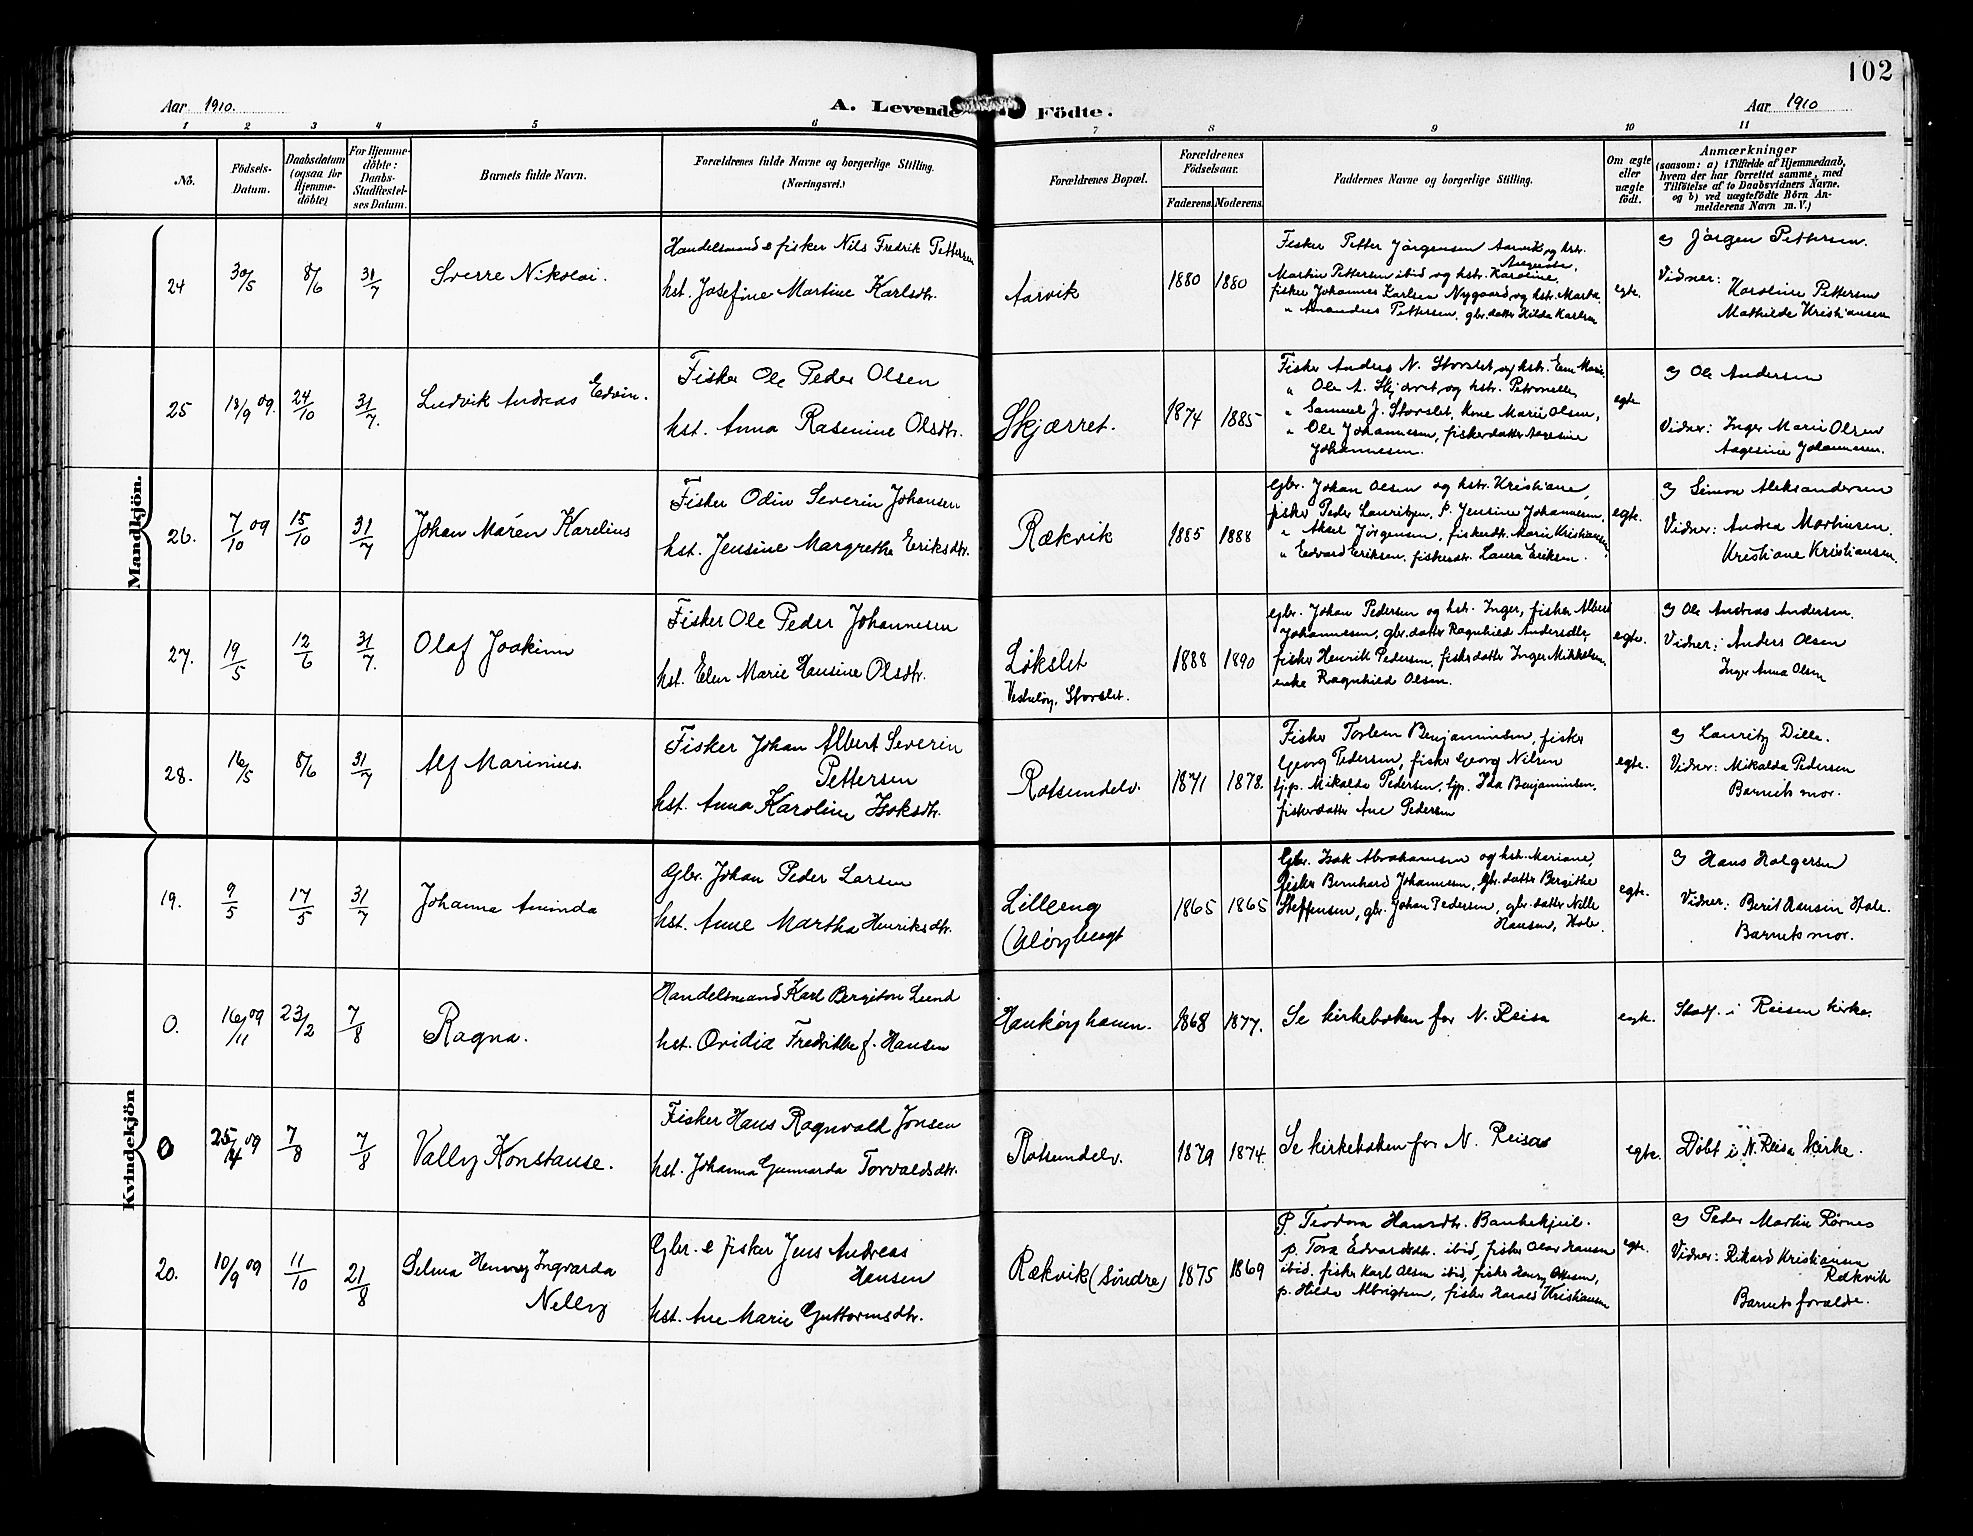 102
Aar 1910.
A. Levende Födte.
Aar 1910
1 2 3 4 5 6 7 8 9 10 11
No.
Födsels-
Datum.
Daabsdatum
(ogsaa for
Hjemme-
döbte)
For Hjemme-
döbte:
Daabs-
Stadfæstel-
ses Datum.
Barnets fulde Navn.
Forældrenes fulde Navne og borgerlige Stilling.
(Næringsvei.)
Forældrenes Bopæl.
Forældrenes
Födselsaar.
Faderens. Moderens.
Faddernes Navne og borgerlige Stilling.
Om ægte
eller
uægte
födt.
Anmærkninger
(saasom: a) i Tilfælde af Hjemmedaab,
hvem der har forrettet samme, med
Tilföielse af to Daabsvidners Navne.
og b) ved uægtefödte Börn An-
melderens Navn m. V.)
Mandkjön.
24
30/5
8/6
31/7
Sverre Nikolai.
Handelsmand & fisker Nils Fredrik Pettersen
hst. Josefine Martine Karlsdtr.
Aarvik
1880
1880
Fisker Petter Jørgensen Aarvik og hstr.
Auguste,
Martin Pettersen ibid og hstr. Karoline,
fisker Johannes Karlsen Nygaard og hstr. Marta
" Amandus Pettersen, gbr.datter Hilda Karlsen
egte.
a) Jörgen Pettersen.
Vidner: Karoline Pettersen
Mathilde Kristiansen
25
18/9 09.
24/10
31/7.
Ludvik Andreas Edvin.
Fisker Ole Peder Olsen
hst. Anna Rasmine Olsdtr.
Skjærret.
1874
1885
Fisker Anders N. Storslet og hstr. Elen Marie
" Ole A. Skjærret og hstr. Petronelle
" Samuel J. Storslet, kone Marie Olsen,
" Ole Johannesen, fiskerdatter Aagesine
Johannesen.
egte
a) Ole Andersen
Vidner: Inger Marie Olsen
Aagesine Johannesen.
26.
7/10 09
15/10
31/7
Johan Møren Karelius
Fisker Odin Severin Johansen
hst. Jensine Margrethe Eriksdtr.
Rækvik
1885
1888
Gbr. Johan Olsen og hstr. Kristiane,
fisker Peder Lauritzen, P. Jensine Johannesen,
" Aksel Jørgensen, fiskerdtr. Marie Kristiansen,
" Edvard Eriksen, fiskerdtr. Laura Eriksen.
egte.
a) Simon Aleksandersen
Vidner: Andrea Mortensen.
Kristiane Kristiansen.
27.
19/5
12/6
31/7.
Olaf Joakim
Fisker Ole Peder Johannesen
hst. Elen Marie Hansine Olsdtr.
Løkslet
Storslet.
1888
1890
gbr. Johan Pedersen og hstr. Inger, fisker Albert
Johannesen, gbr.datter Ragnhild Andersdtr,
fisker Henrik Pedersen, fiskerdatter Inger Mikkelsen,
enke Ragnhild Olsen.
egte.
a) Ole Andreas Andersen.
Vidner: Anders Olsen
Inger Anna Olsen
28.
16/5
8/6
31/7
Alf Marinius.
Fisker Johan Albert Severin
Pettersen
hst. Anna Karoline Isaksdtr.
Rotsundelv.
1871
1878.
Fisker Torlem Benjaminsen, fisker
Georg Pedersen, fisker Georg Nilsen
tj.p. Mikalda Pedersen, tjp. Ida Benjaminsen,
fiskerdatter Ane Pedersen
egte.
a) Lauritz Dille.
Vidner: Mikalda Pedersen
Barnets mor.
Kvindekjön
19.
9/5
17/5
31/7
Johanna Aminda
Gbr. Johan Peder Larsen
hst. Anne Martha Henriksdtr.
Lilleeng
1865
1865
Gbr. Isak Abrahamsen og hstr. Mariane,
fisker Bernhard Johannesen, gbr.datter Bergithe
Steffensen, gbr. Johan Pedersen, gbr.datter Nille
Hansen, Hole.
egte.
a) Hans Holgersen
Vidner: Berit Hansen Hole.
Barnets mor.
0.
16/11 09
23/2
7/8
Ragna.
Handelsmand Karl Bergiton Lund
hst. Ovidia Fredrikke f. Hansen
Haukøyhavn.
1868
1877.
Se kirkeboken for N. Reisa
egte.
Stadf. i Reisen kirke.
0
25/4 09
7/8
7/8
Vally Konstanse.
Fisker Hans Ragnvald Jonsen
hst. Johanna Gunnarda Torvaldsdtr.
Rotsundelv.
1879
1874.
Se kirkeboken for N. Reisa
egte.
Döbt i N. Reisa kirke.
20.
10/9 09
11/10
21/8
Selma Henny Ingvarda
Nelly
Gbr. & fisker Jens Andreas
Hansen
hst. Ane Marie Guttormsdtr.
Rækvik (Söndre)
1875
1869
P. Teodora Hansdtr. Bankekjeil.
p. Tora Edvardsdtr. ibid, fisker Olav Hansen
ibid. fisker Karl Olsen ibid, fisker Henry Ottesen,
p. Hilda Albrigtsen, fisker Harald Kristiansen
egte.
a) Peder Martin Rørnes
Vidner: Rikard Kristiansen
Rækvik
Barnets forældre.